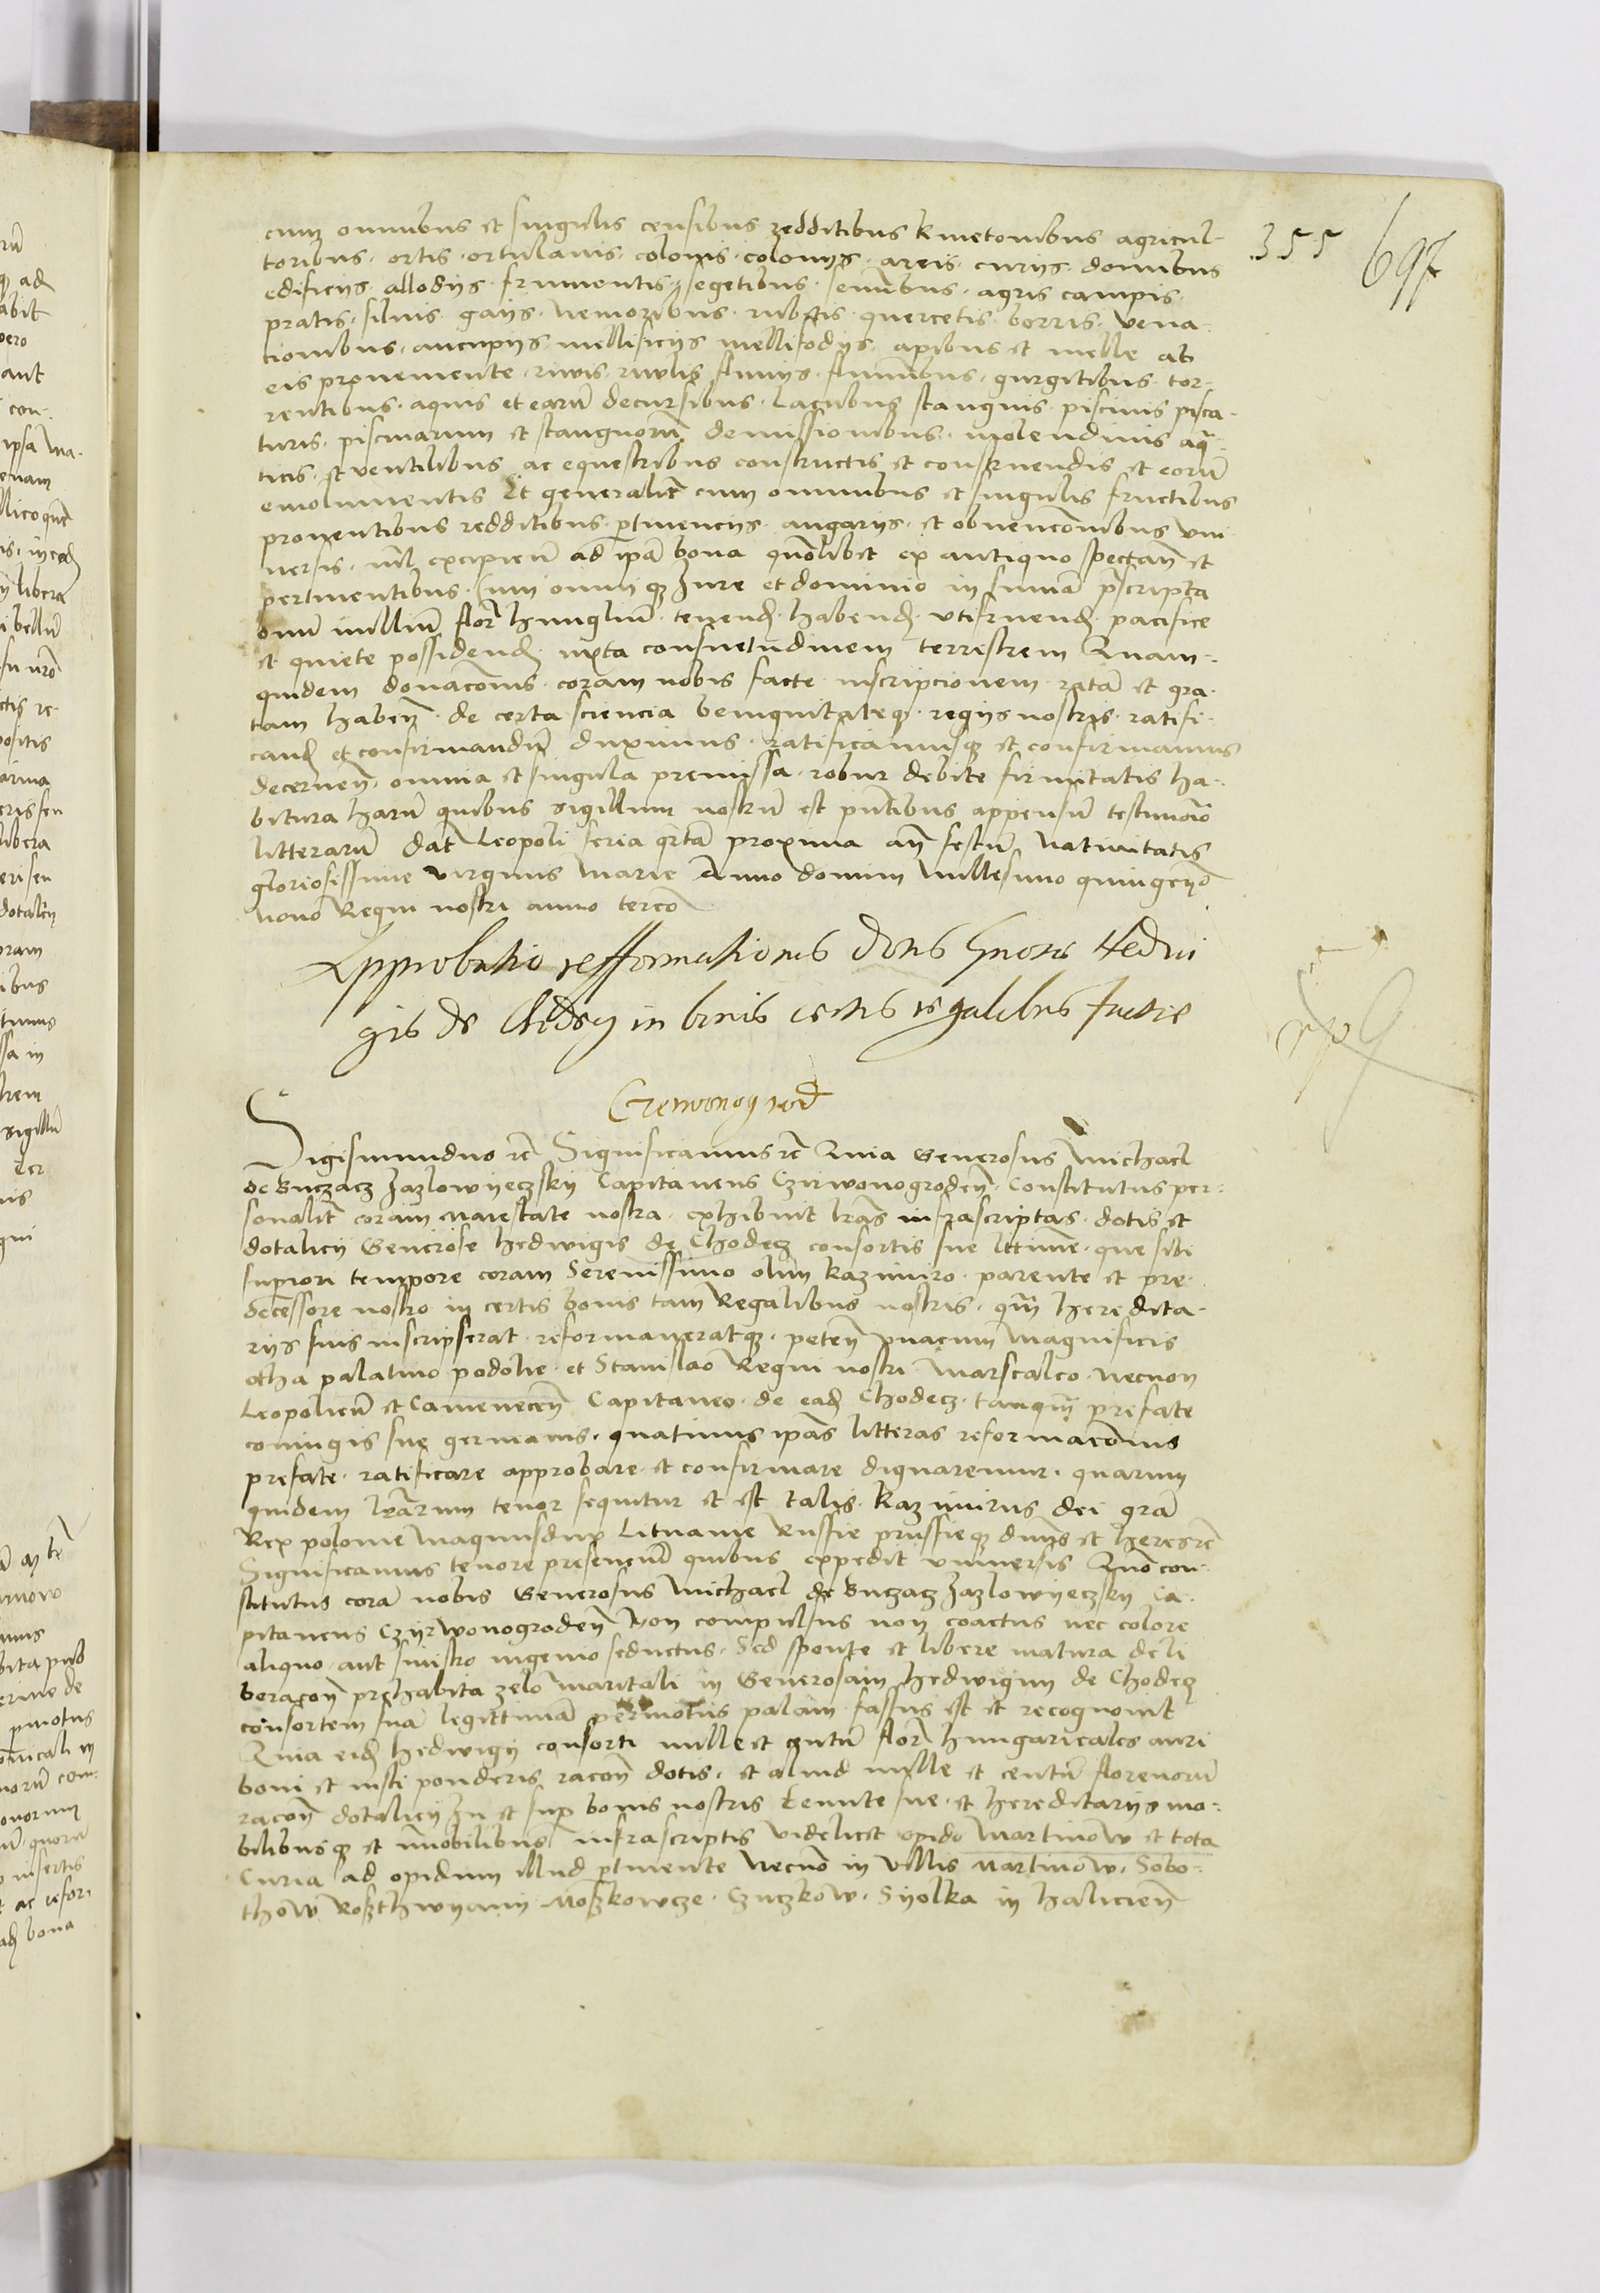 355 697
cum omnibus et singulis censibus redditibus kmetonibus agricul-
toribus · ortis · ortulanis · colonis · colonijs · areis · curijs · domibus
edificijs · allodijs · frumentis · segetibus · seminibus · agris campis ·
pratis · siluis · gaijs · nemoribus · rubetis · quercetis · borris · vena-
tionibus · aucupijs mellificijs mellifodijs · apibus et melle ab
eis proueniente · riuis · riwlis fluuijs · fluminibus · gurgitibus · tor-
rentibus · aquis et earum decursibus · Lacubus stangnis · piscinis pisca-
turis · piscinarum et stangnorum demissionibus · molendinis aqua-
ticis · et ventilibus ac equestribus constructis et construendis et eorum
emolumentis Et generalit cum omnibus et singulis fructibus
prouentibus redditibus · ptinencijs · angarijs · et obuencionibus vni-
uersis · nil excipien ad ipa bona quolibet ex antiquo spectan et
pertinentibus · Cum omnique Iure et dominio in summa pscripta
millium flor hunglium · tenend · habend · vtifruend pacifice
et quiete possidend · iuxta consuetudinem terrestrem Quam-
quidem donacionis · coram nobis facte inscripcionem ratam et gra-
tam haben · de certa sciencia benignitateque · regijs nostris · ratifi-
cand et confirmandum duximus · ratificamusque et confirmamus
decernen · omnia et singula premissa · robur debite firmitatis ha-
bitura harum quibus sigillum nostrum est pntibus appensum testimonio
litterarum Dat Leopoli feria qrta proxima an festum Natiuitatis
gloriosissime virginis Marie Anno domini millesimo quingen
nono Regni nostri anno tercio
Approbatio refformationis dotis Gnose Hedui
gis de Chodecz in bonis certis regalibus facte
Sigismundus etc Significamus etc Quia Generosus Michael
de Buczacz Jazlowyeczsky Capitaneus Czirwonogroden · Constitutus per-
sonalit coram Maiestate nostra · exhibuit lras infrascriptas · dotis et
dotalicij Generose hedwigis de Chodecz consortis sue lttime · que sibi
supiori tempore coram Serenissimo olim kazimiro · parente et pre-
decessore nostro in certis bonis tam Regalibus nostris · qm heredita-
rijs suis inscripserat · reformaueratque · peten vnacum Magnificis
otha palatino podolie · et Stanislao Regni nostri Marscalco · necnon
Leopolien et Camenecen Capitaneo · de ead Chodecz · tanqm prefate
coniugis sue germanis · quatinus ipas litteras reformacionis
prefate · ratificare approbare · et confirmare dignaremur · quarum
quidem lrarum tenor sequitur et est talis · kazimirus dei gra
Rex polonie Magnusdux Lituanie Russie prussieque dns et heres etc
Significamus tenore presencium quibus expedit vniuersis Quo con-
stitutus coram nobis Generosus Michael de Buczacz Jazlowyeczsky Ca-
pitaneus Czyrwonogroden Non compulsus non coactus nec colore
aliquo · aut sinistro ingenio seductus · Sed sponte et libere matura deli
beracion prehabita zelo maritali in Generosam hedwigim de Chodecz
consortem suam legittimam permotus palam fassus est et recognouit
Quia eid hedwigij consorti mille et centum flor hungaricales auri
boni et iusti ponderis racon dotis · et aliud mille et centum florenorum
racon dotalicij In et sup bonis nostris tenute sue · et hereditarijs mo-
bilibusque et immobilibus infrascriptis videlicet opido Martinow et tota
Curia ad opidum illud ptinente Necno in villis Martinow · Sobo-
thow Roszthwyany Moszkowcze · Czuczkow · Syolka in halicien